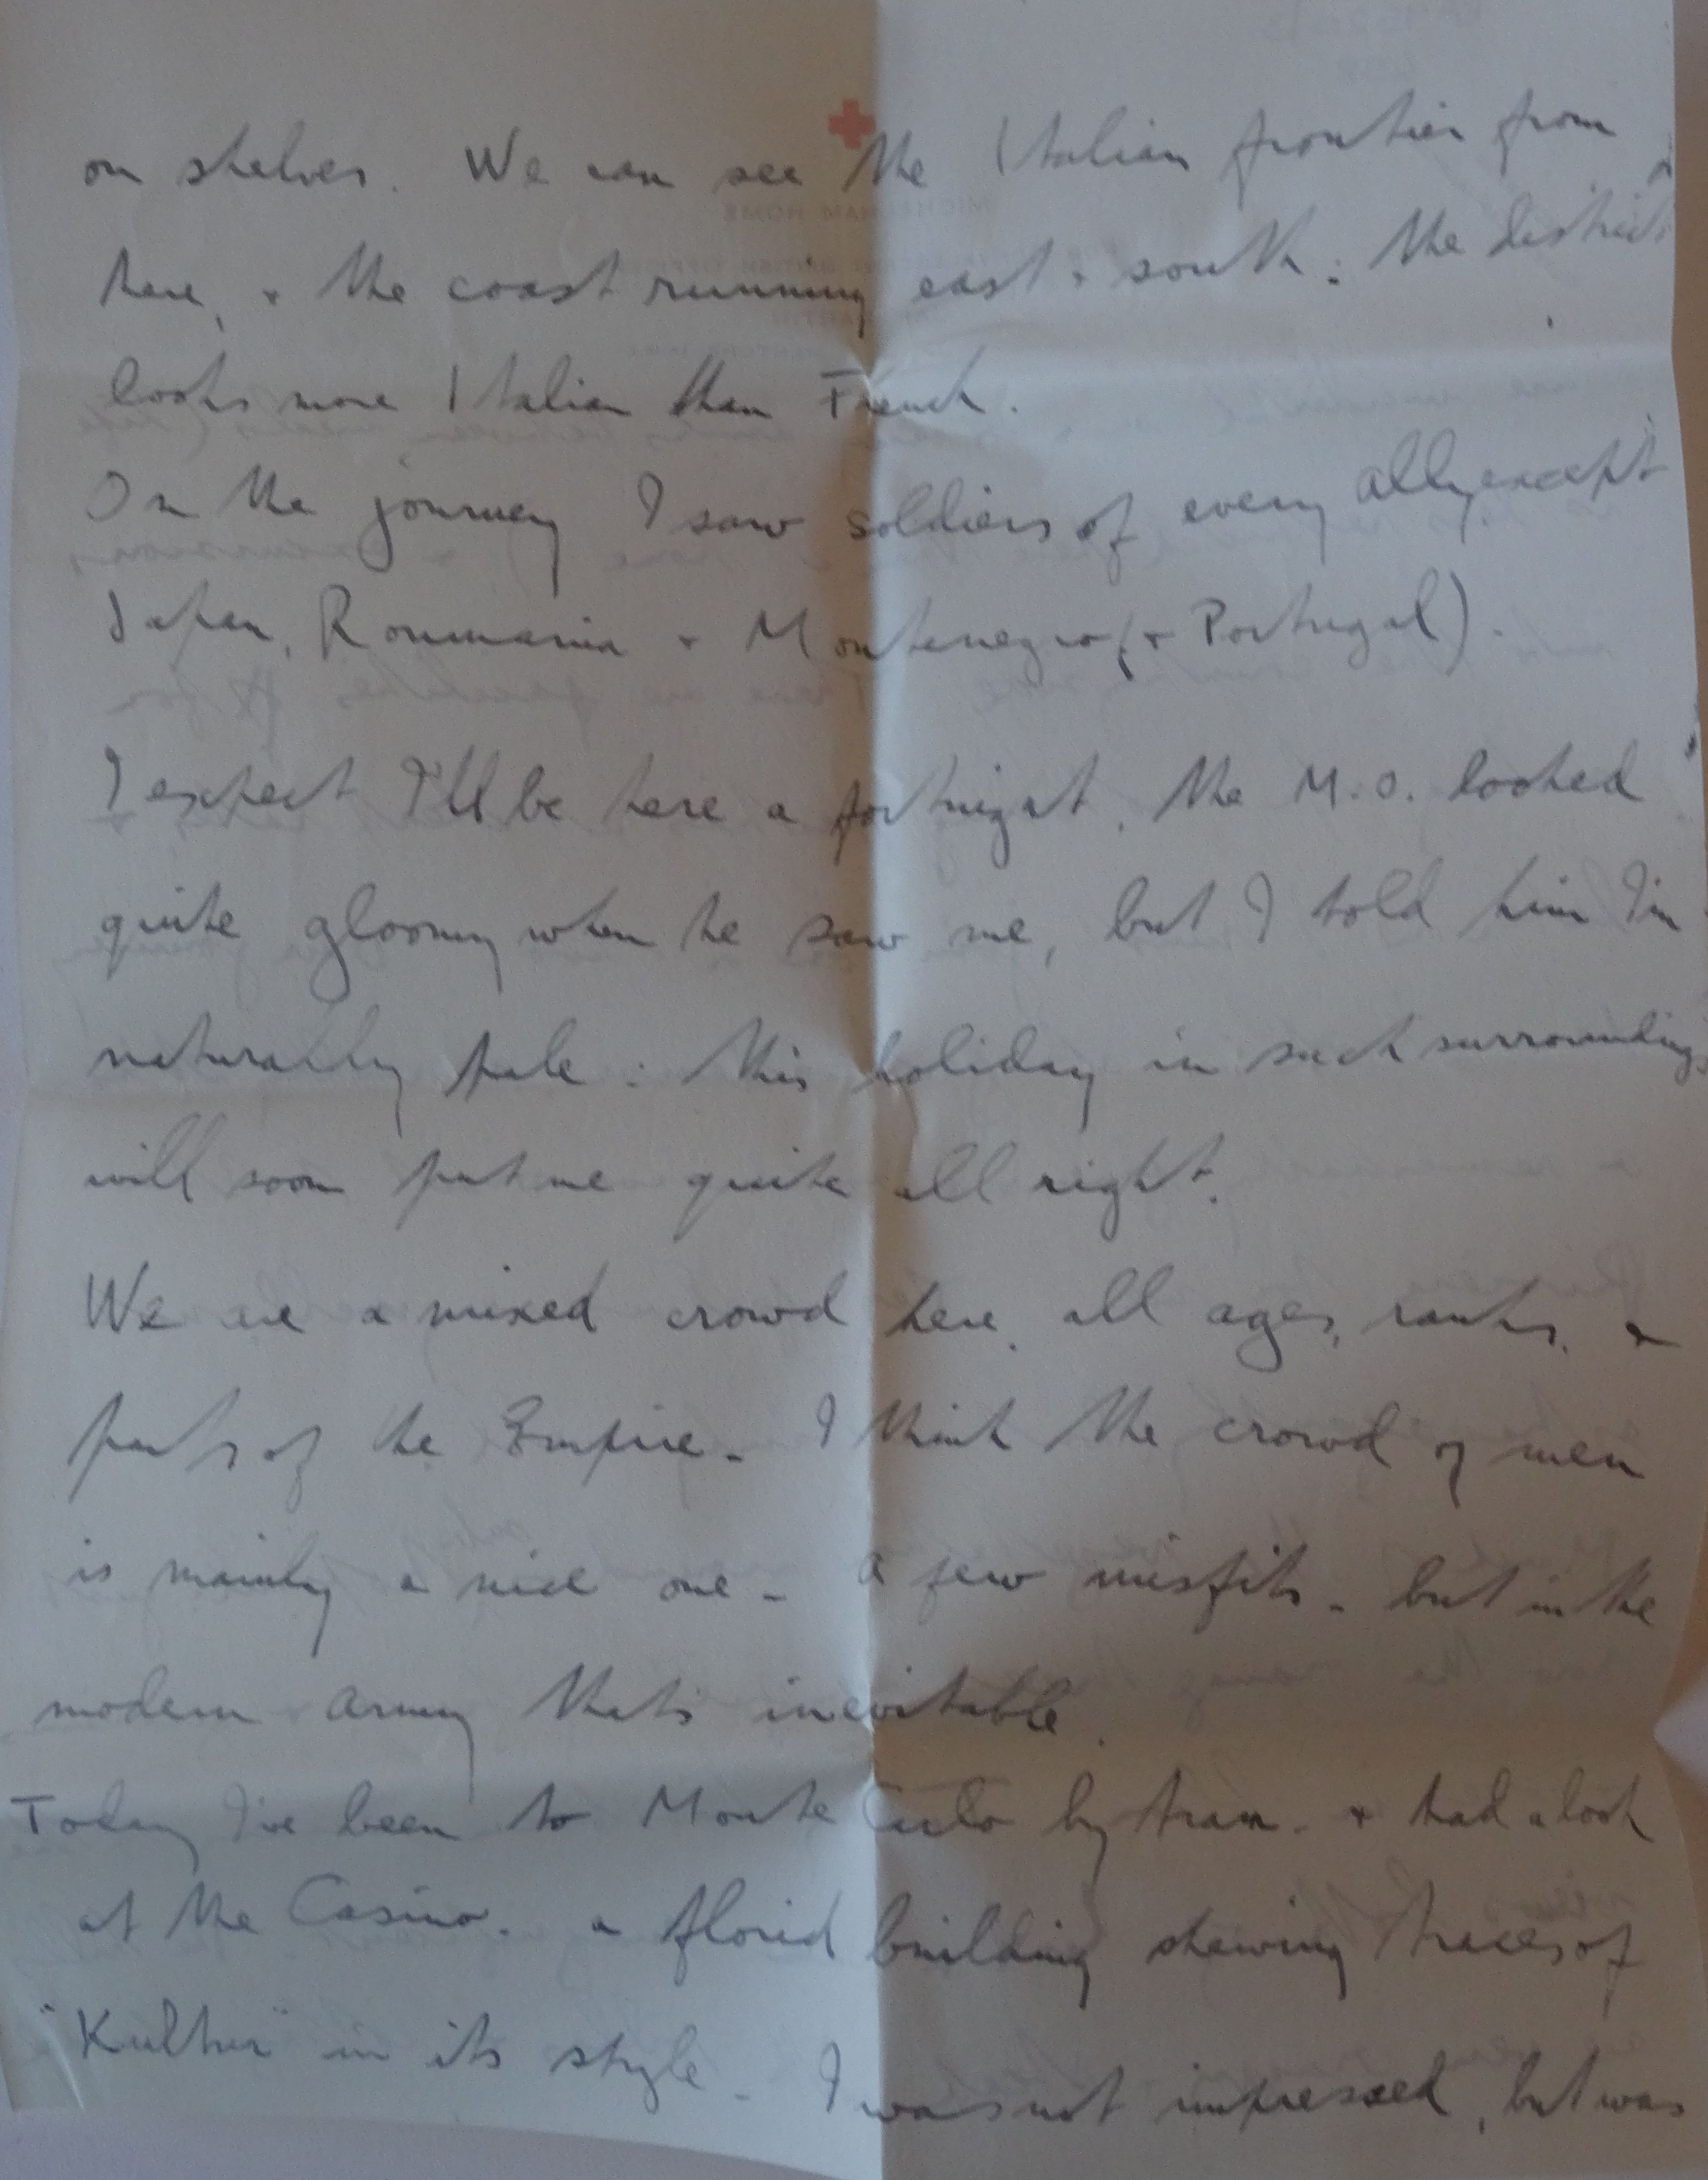 on shelves. We can see the Italian frontier from
here, + the coast running east + south: the district
looks more Italian than French.
On the journey I saw soldiers of every ally, except
Japan, Roumania + Montenegro (+ Portugal).
I expect I'll be here a fortnight. The M.O. looked
quite gloomy when he saw me, but I told him I'm
naturally pale: this holiday in such surroundings
will soon put me quite all right.
We are a mixed crowd here, all ages, ranks, +
parts of the Empire - I think the crowd of men
is mainly a nice one - a few misfits - but in the
modern army that's inevitable.
Today I've been to Monte Carlo by tram - + had a look
at the Casino. a florid building shewing traces of
"Kultur" in its style - I was not impressed, but was